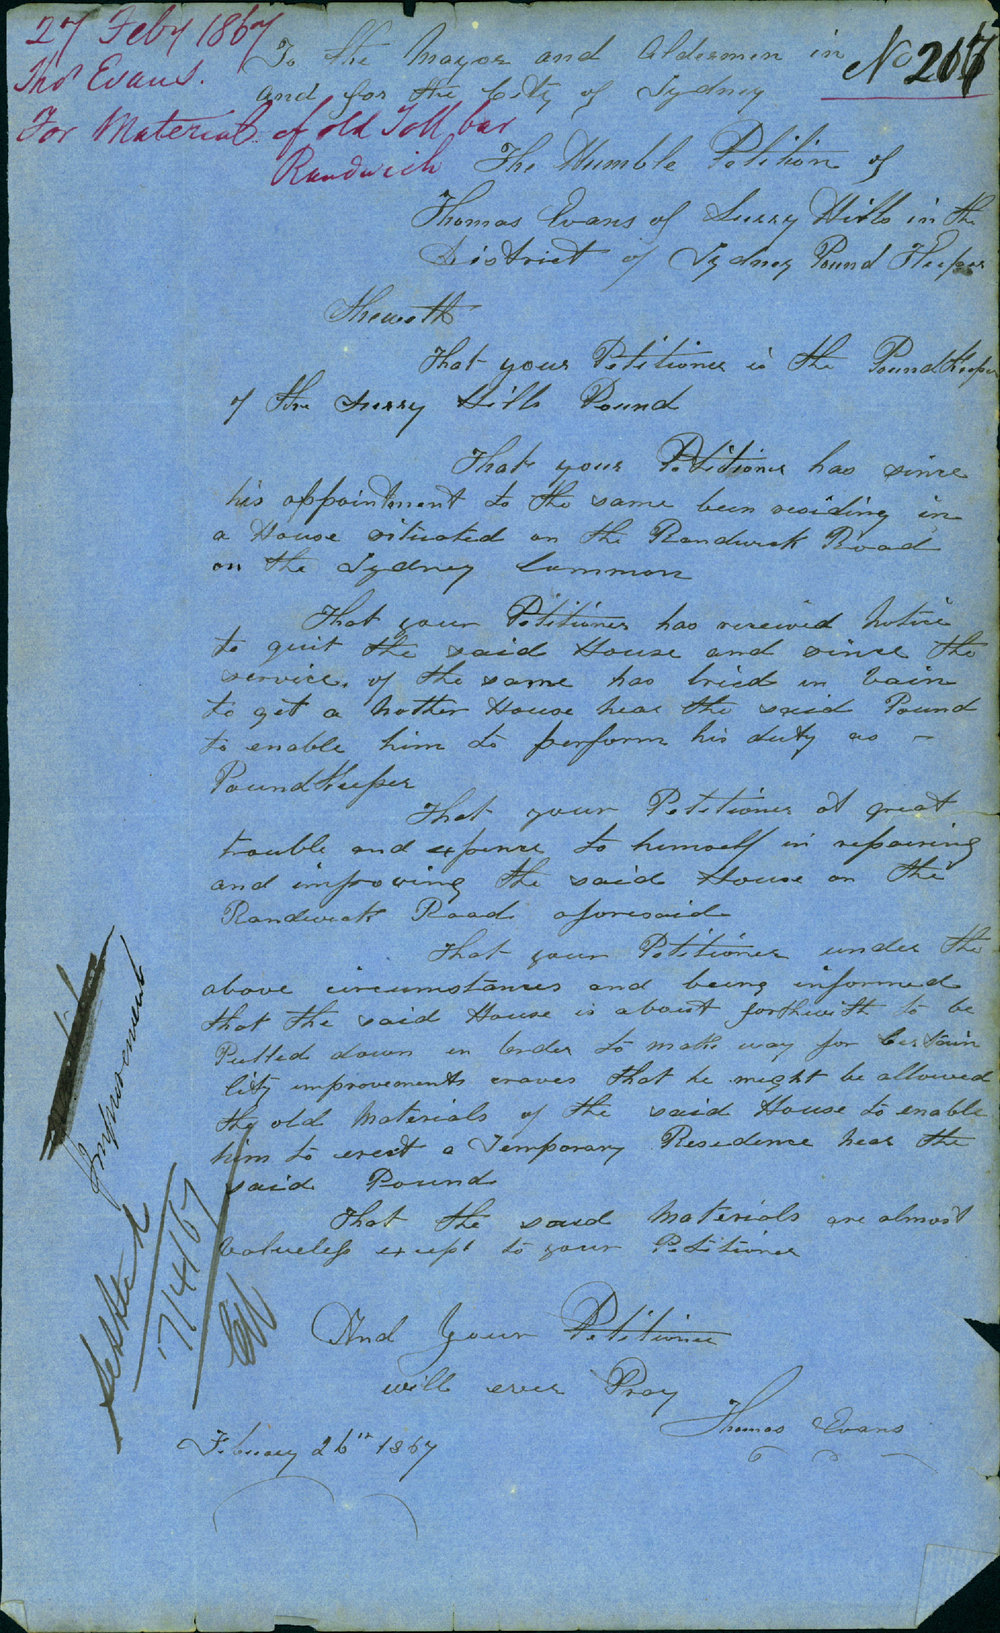 27 Feby 1867
Thos Evans.
For Materials of old Toll bar
Randwick
No 217
To the Mayor and Aldermen in
and for the City of Sydney
The Humble Petition of
Thomas Evans of Surry Hills in the
District of Sydney Pound Keeper
Sheweth
That your Petitioner is the Pound Keeper
of the Surry Hills Pound
That your Petitioner has since
his appointment to the same been residing in
a House situated on the Randwick Road
on the Sydney Common
That your Petitioner has received Notice
to quit the said House and since the
service of the same has tried in Vain
to get a nother House near the said Pound
to enable him to perform his duty as –
Pound Keeper
That your Petitioner at great
trouble and expense to himself in repairing
and improving the said House on the
Randwick Road aforesaid
That your Petitioner under the
above circumstances and being informed
that the said House is about forthwith to be
Pulled down in order to make way for Certain
City improvements craves that he might be allowed
the old Materials of the said House to enable
him to erect a Temporary Residence near the
said Pound
That the said Materials are almost
Valueless except to your Petitioner
And Your Petitioner
will ever Pray
Thomas Evans
February 26th 1867
Improvement
17/4/67